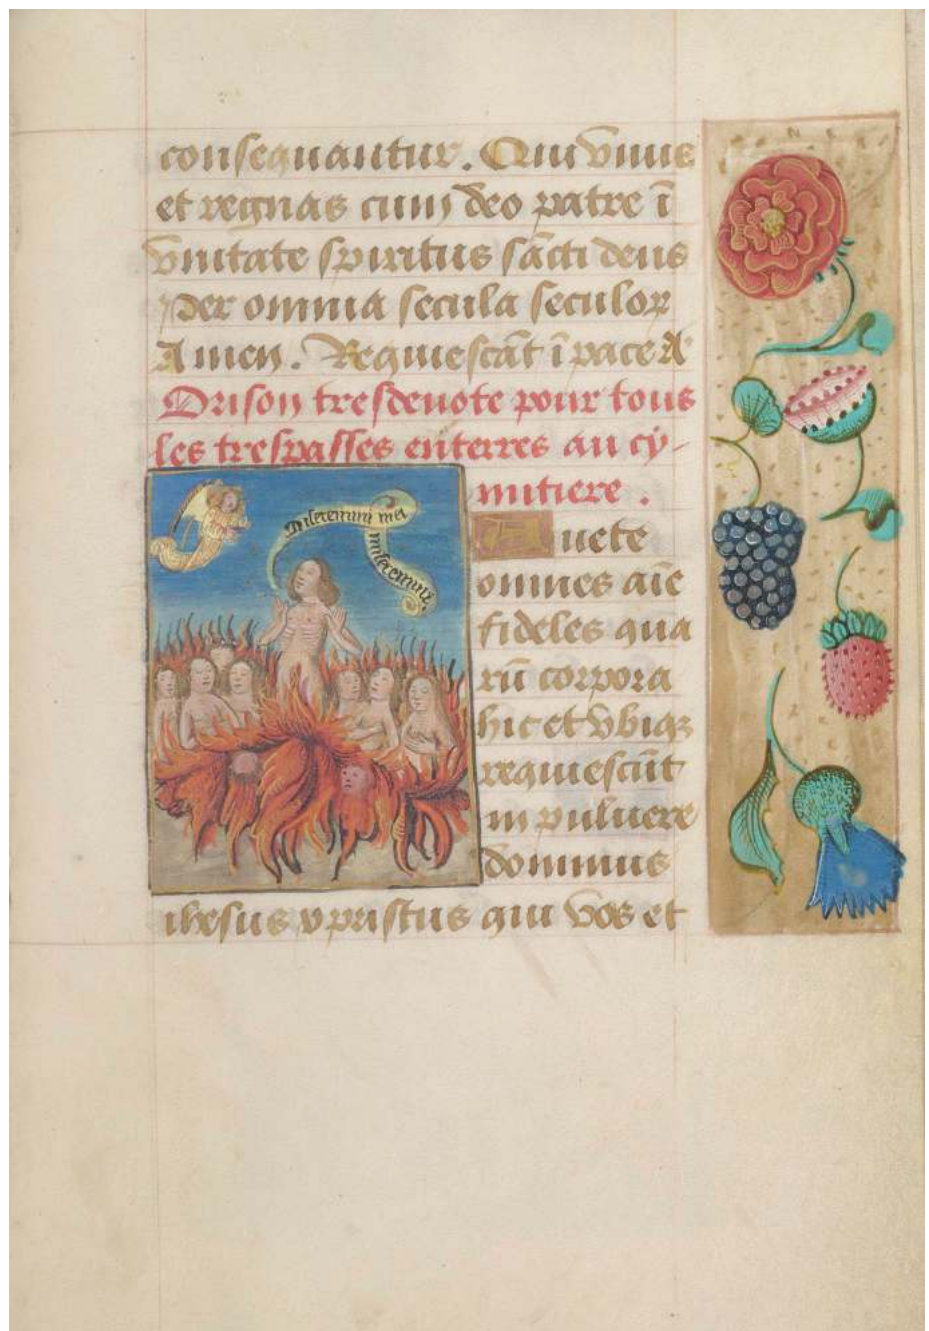 consequantur. Qui viuis
et regnas cum deo patre ī
vnitate spiritus sācti deus
Per omnia secula seculoꝝ
Amen. Requiescāt ī pace Aͫ
Orison tresdeuote pour tous
les trespasses enterres au cy-
mitiere.
Miseremini mei
miseremini
Auete
omnes aīe
fideles qua
rū corpora
hic et vbiqꝫ
requiescūt
in puluere
dominus
ihesus xpristus qui vos et